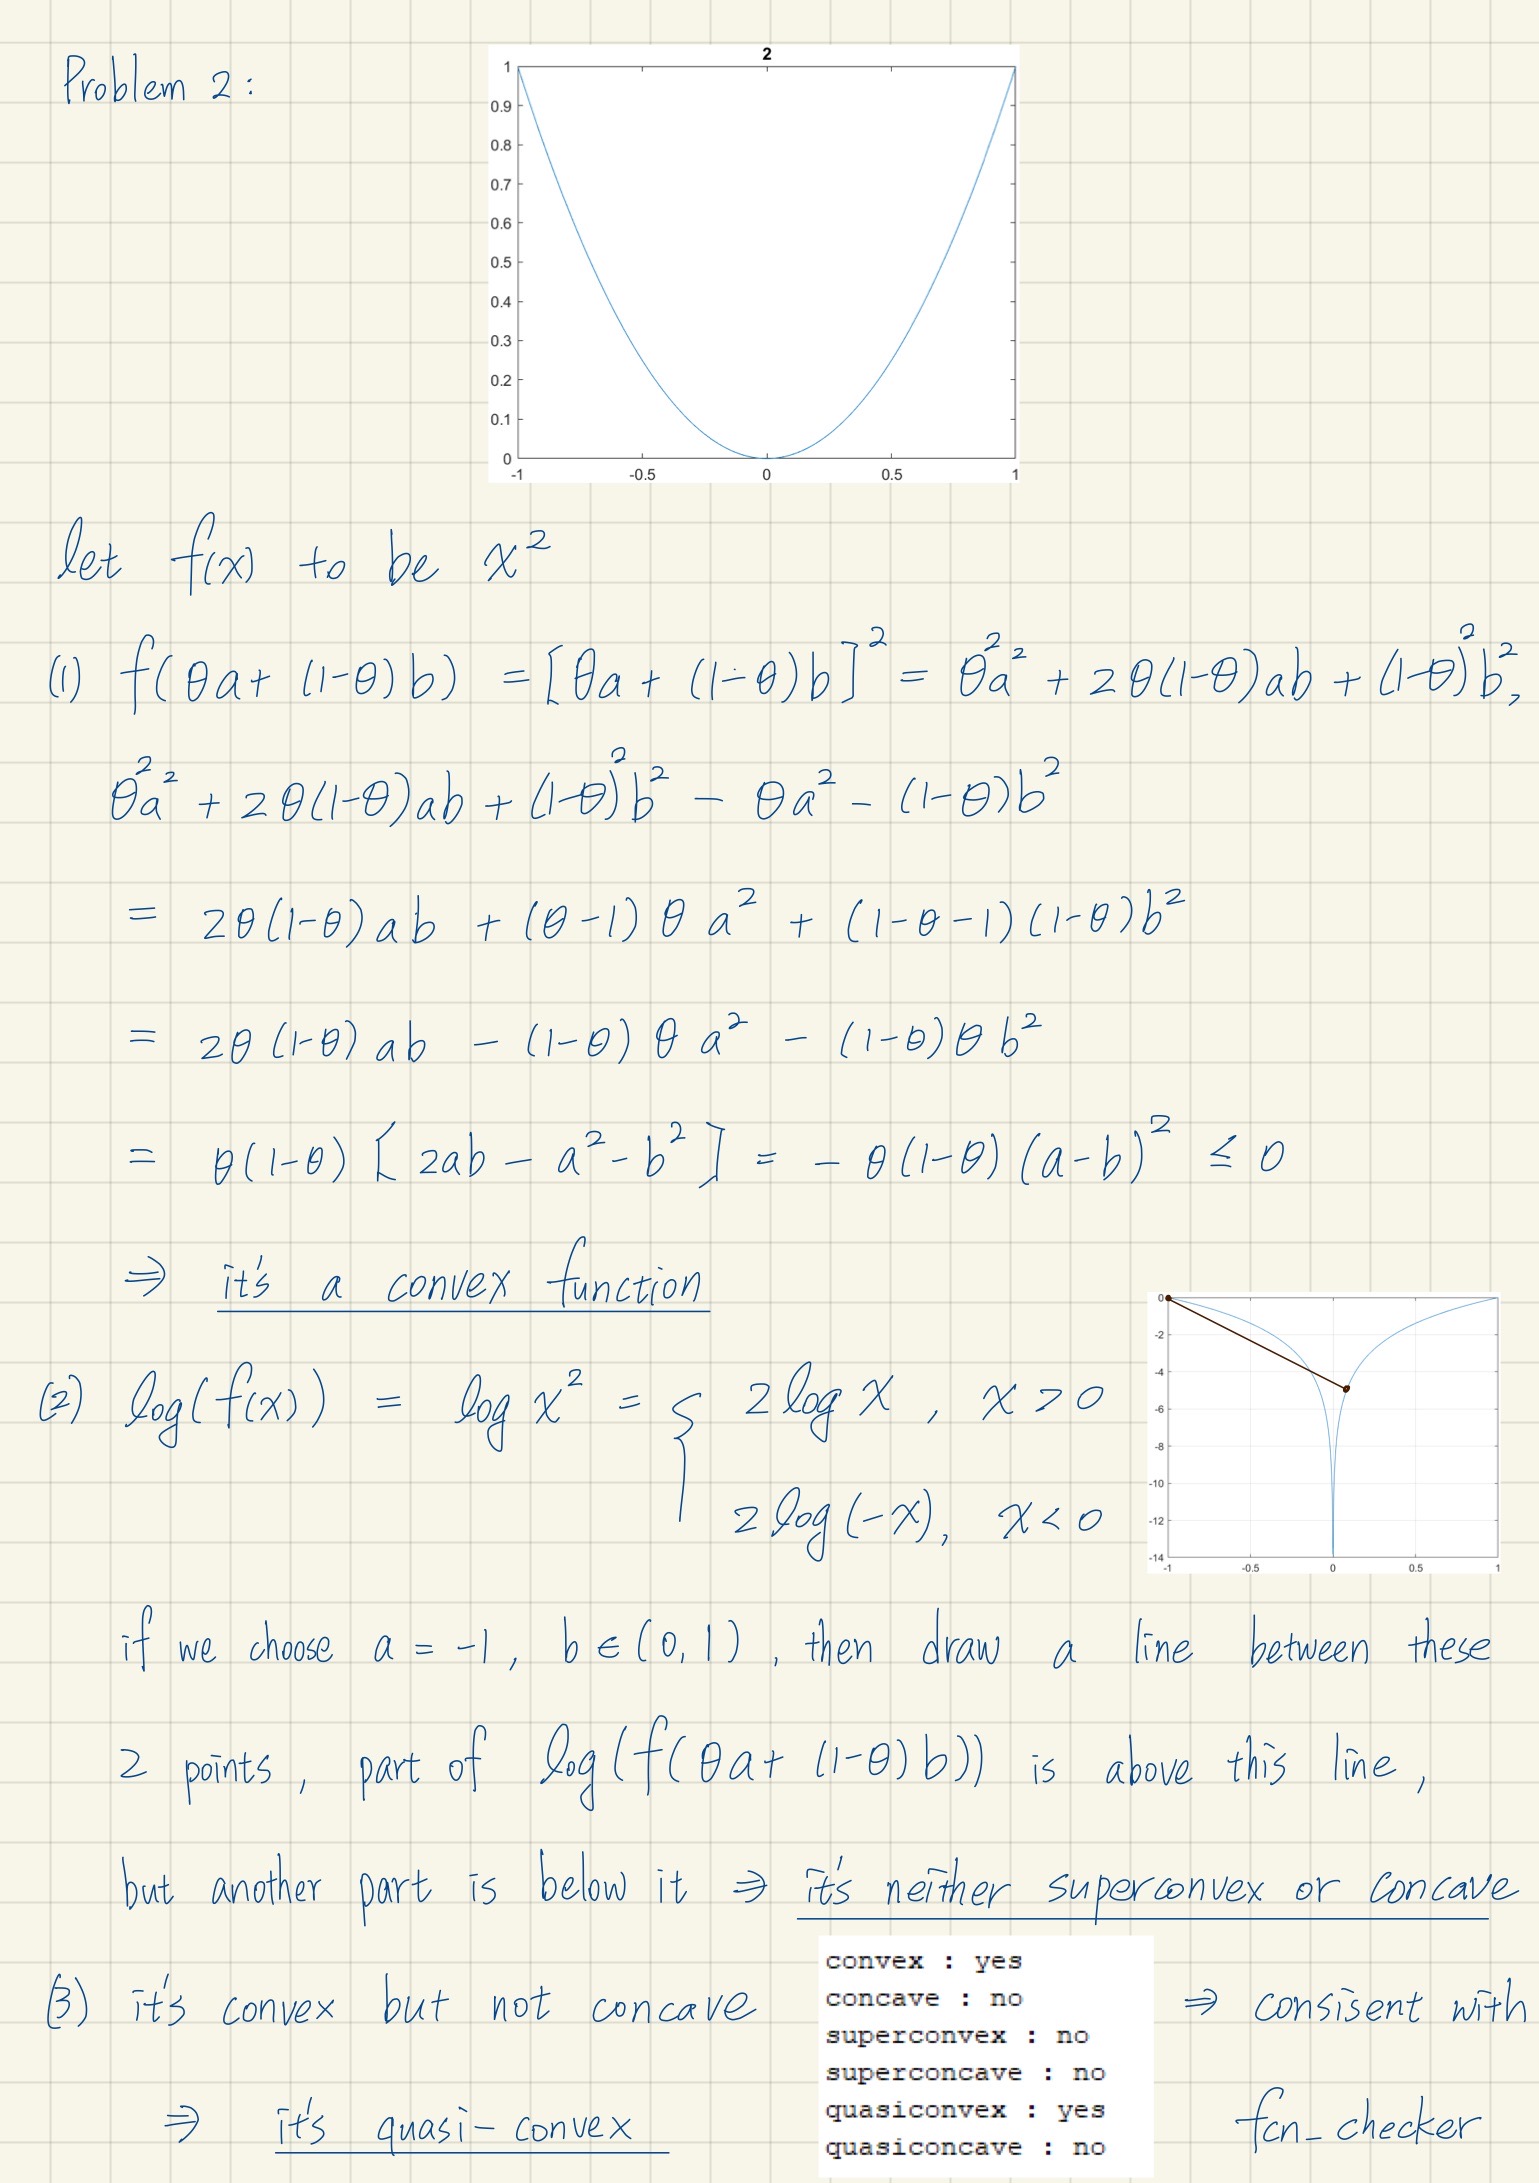 Problem 2:
2
1
0.9
0.8
0.7
0.6
0.5
0.4
0.3
0.2
0.1
0
-1 -0.5 0 0.5 1
let f(x) to be x²
(1) f(θa+ (1-θ)b) = [θa + (1-θ)b]² = θ²a² + 2θ(1-θ)ab + (1-θ)²b²,
θ²a² + 2θ(1-θ)ab + (1-θ)²b² - θa² - (1-θ)b²
= 2θ(1-θ)ab + (θ-1)θa² + (1-θ-1)(1-θ)b²
= 2θ(1-θ)ab - (1-θ)θa² - (1-θ)θb²
= θ(1-θ)[2ab - a² - b²] = -θ(1-θ)(a-b)² ≤ 0
⇒ it's a convex function
0
-2
-4
-6
-8
-10
-12
-14
-1 -0.5 0 0.5 1
(2) log(f(x)) = log x² = { 2log x, x>0
2log(-x), x<0
if we choose a = -1, b∈(0,1), then draw a line between these
2 points, part of log(f(θa+ (1-θ)b)) is above this line,
but another part is below it ⇒ it's neither superconvex or concave
(3) it's convex but not concave
⇒ it's quasi-convex
convex : yes
concave : no
superconvex : no
superconcave : no
quasiconvex : yes
quasiconcave : no
⇒ consisent with
fcn_checker